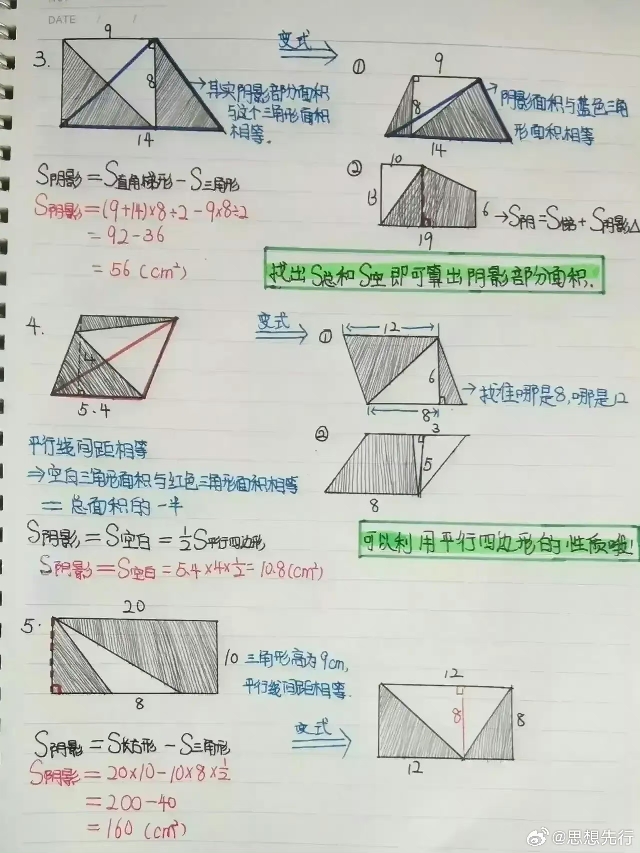 DATE / /
9
变式
3.
8
14
→其实阴影部分面积
与这个三角形面积
相等.
①
9
8
14
阴影面积与蓝色三角
形面积相等
S阴影=S直角梯形-S三角形
S阴影=(9+14)×8÷2-9×8÷2
=92-36
=56(cm²)
②
10
13
6
19
→S阴=S梯+S阴影△
找出S总和S空即可算出阴影部分面积.
4.
4
5.4
变式
①
12
6
8
→找准哪是8,哪是12
平行线间距相等
⇒空白三角形面积与红色三角形面积相等
=总面积的一半
②
3
5
8
S阴影=S空白=½S平行四边形
S阴影=S空白=5.4×4×½=10.8(cm²)
可以利用平行四边形的性质哦
5.
20
10
8
三角形高为9cm,
平行线间距相等.
变式
12
8
8
12
S阴影=S长方形-S三角形
S阴影=20×10-10×8×½
=200-40
=160(cm²)
@思想先行